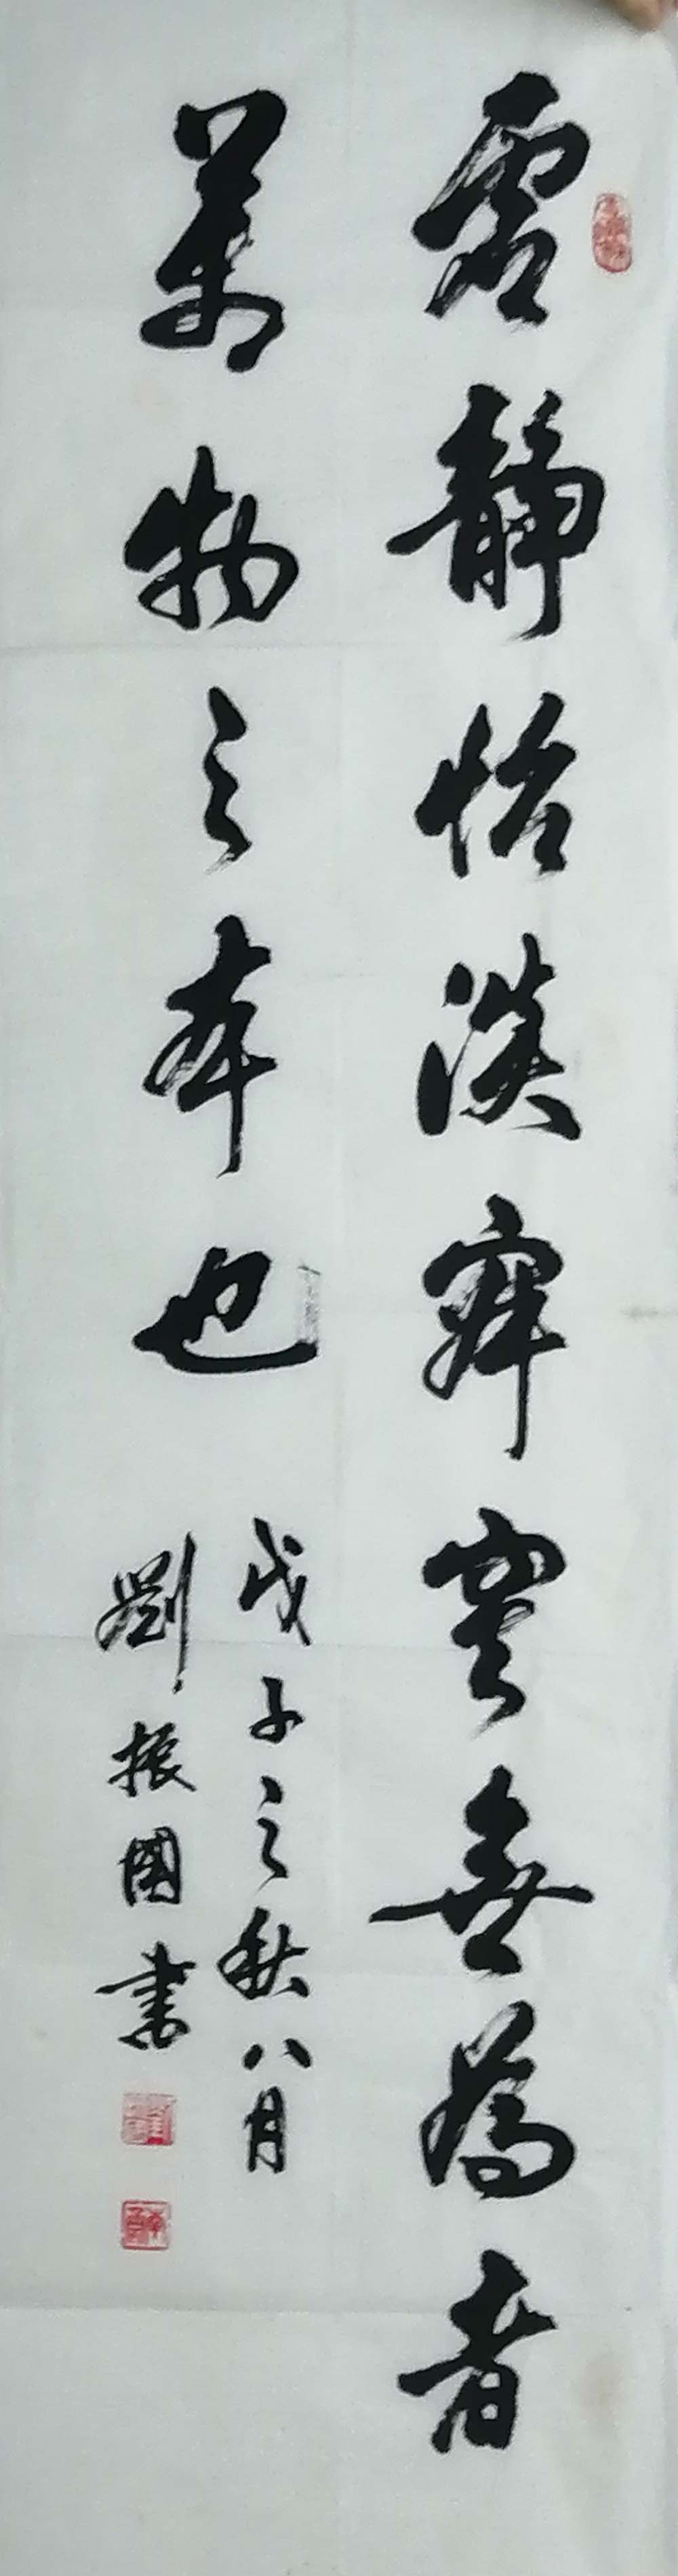 虛靜恬淡寂寞無為者
萬物之本也
戊子之秋八月
劉振國書